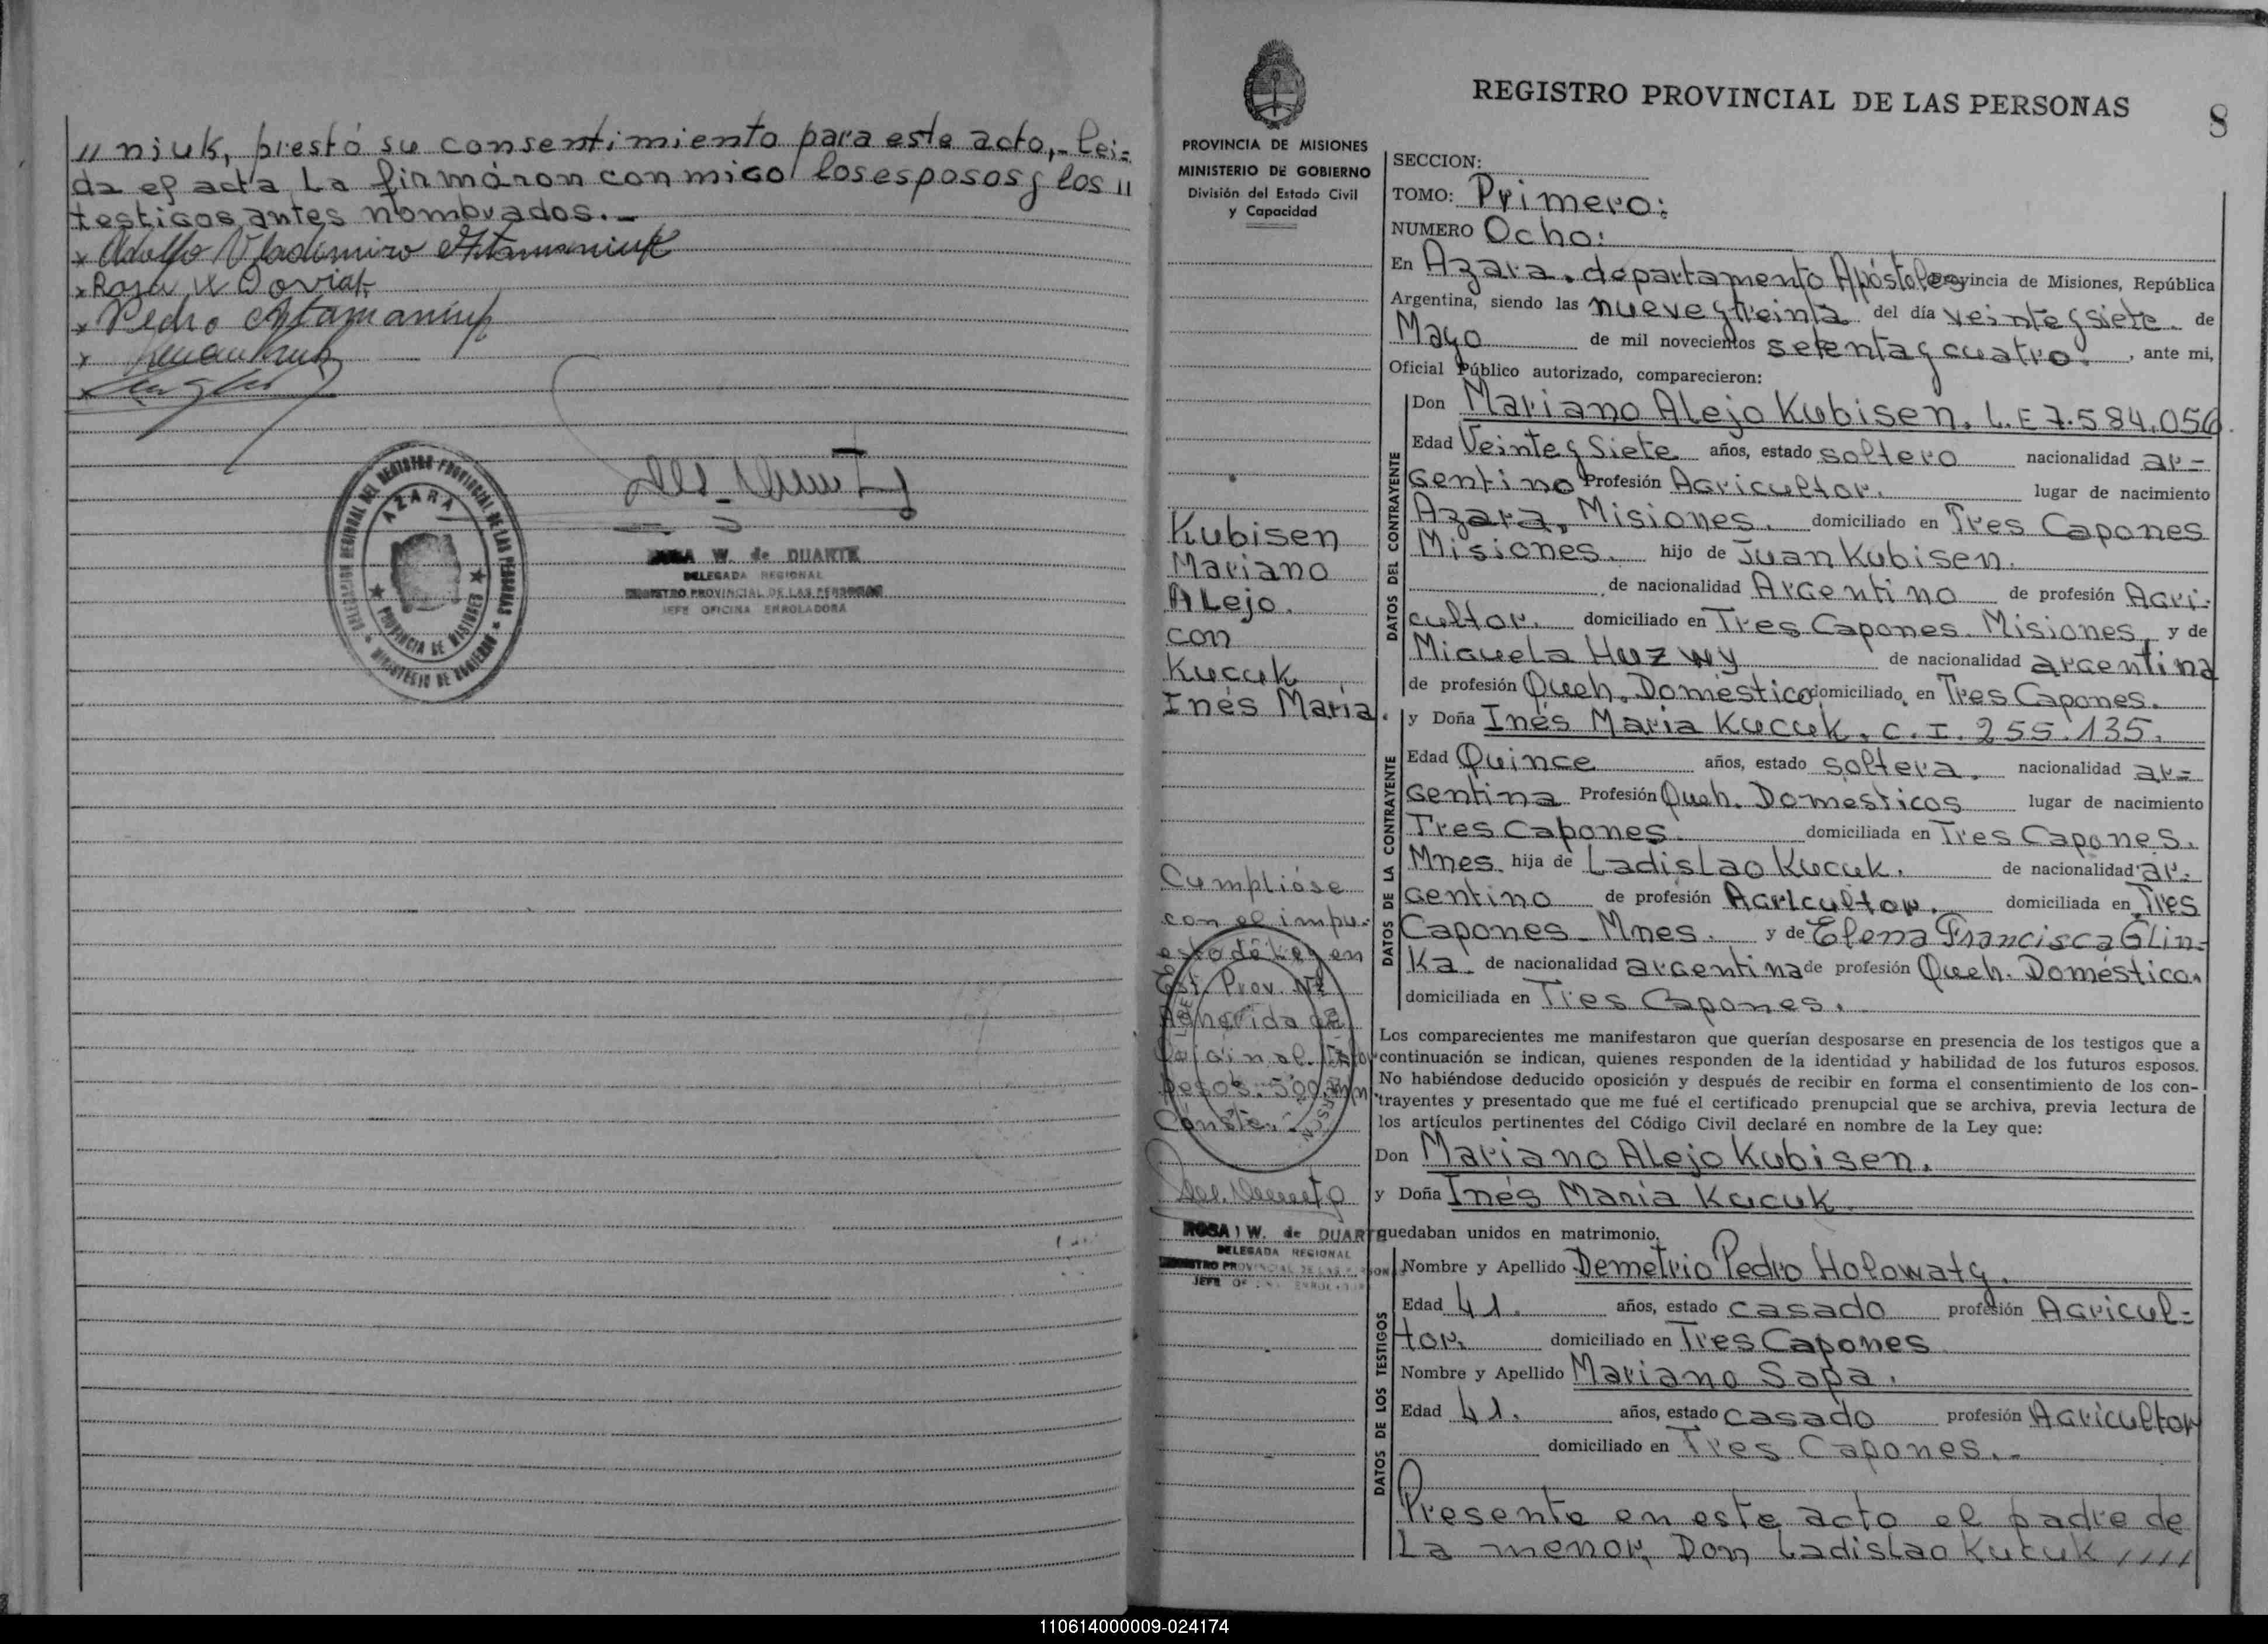 // niuk, prestó su consentimiento para este acto,- lei=
da el acta La firmáron conmigo los esposos y los //
testigos antes nombrados.-
x Adolfo Vladimiro Atamaniuk
x Rosa W Doviak
x Pedro Atamaniuk
x
x
DELEGACION REGIONAL DEL REGISTRO PROVINCIAL DE LAS PERSONAS
AZARA
PROVINCIA DE MISIONES
MINISTERIO DE GOBIERNO
ROSA W. de DUARTE
DELEGADA REGIONAL
REGISTRO PROVINCIAL DE LAS PERSONAS
JEFE OFICINA ENROLADORA
REGISTRO PROVINCIAL DE LAS PERSONAS
8
PROVINCIA DE MISIONES
MINISTERIO DE GOBIERNO
División del Estado Civil
y Capacidad
Kubisen
Mariano
ALejo.
con
Kucuk
Inés María.
Cumplióse
con el impu-
esto de Ley en
Est. Prov. Nº
Adherida al
pesos. 500. m/n
Conste.
ROSA W. de DUARTE
DELEGADA REGIONAL
REGISTRO PROVINCIAL DE LAS PERSONAS
JEFE OF. ENROL
SECCION:
TOMO: Primero:
NUMERO Ocho:
En Azara. departamento Apóstoles Provincia de Misiones, República
Argentina, siendo las nueve y treinta del día veinte y siete. de
Mayo de mil novecientos setenta y cuatro. , ante mi,
Oficial Público autorizado, comparecieron:
DATOS DEL CONTRAYENTE
Don Mariano Alejo Kubisen. L.E 7.584.056.
Edad Veinte y Siete años, estado soltero nacionalidad ar=
gentino Profesión Agricultor. lugar de nacimiento
Azara, Misiones. domiciliado en Tres Capones
Misiones. hijo de Juan Kubisen.
de nacionalidad Argentino de profesión Agri-
cultor. domiciliado en Tres Capones. Misiones, y de
Miguela Huzwy de nacionalidad argentina
de profesión Queh. Doméstico domiciliado en Tres Capones.
DATOS DE LA CONTRAYENTE
y Doña Inés Maria Kucuk. C.I. 255.135.
Edad Quince años, estado soltera. nacionalidad ar=
gentina Profesión Queh. Domésticos lugar de nacimiento
Tres Capones. domiciliada en Tres Capones.
Mnes. hija de Ladislao Kucuk. de nacionalidad ar-
gentino de profesión Agricultor. domiciliada en Tres
Capones - Mnes. y de Elena Francisca Glin-
Ka. de nacionalidad argentina de profesión Queh. Doméstico.
domiciliada en Tres Capones.
Los comparecientes me manifestaron que querían desposarse en presencia de los testigos que a
continuación se indican, quienes responden de la identidad y habilidad de los futuros esposos.
No habiéndose deducido oposición y después de recibir en forma el consentimiento de los con-
trayentes y presentado que me fué el certificado prenupcial que se archiva, previa lectura de
los artículos pertinentes del Código Civil declaré en nombre de la Ley que:
Don Mariano ALejo Kubisen.
y Doña Inés Maria Kucuk
quedaban unidos en matrimonio.
DATOS DE LOS TESTIGOS
Nombre y Apellido Demetrio Pedro Holowaty.
Edad 41. años, estado casado profesión Agricul=
tor. domiciliado en Tres Capones
Nombre y Apellido Mariano Sapa.
Edad 41. años, estado casado profesión Agricultor
domiciliado en Tres Capones.-
Presente en este acto el padre de
La menor, Don Ladislao Kucuk ////
110614000009-024174